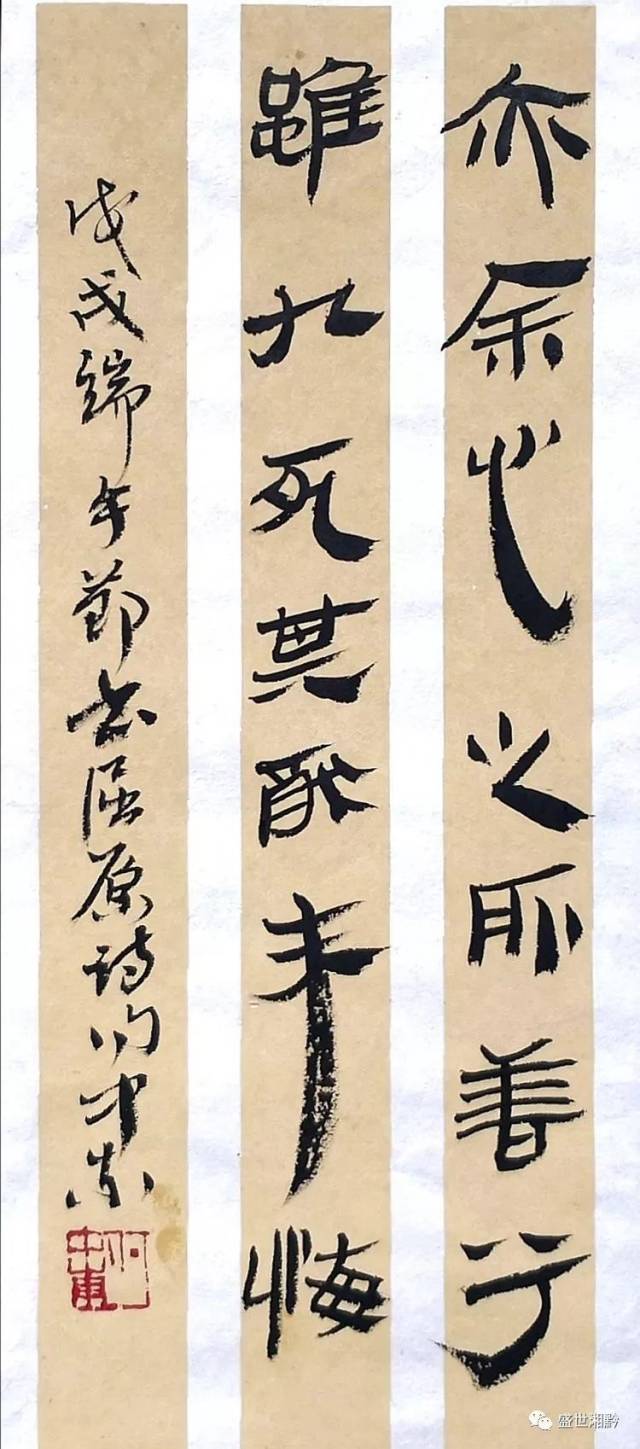 亦余心之所善兮
雖九死其猶未悔
戊戌端午節書屈原詩何中东
何中東
盛世湘黔